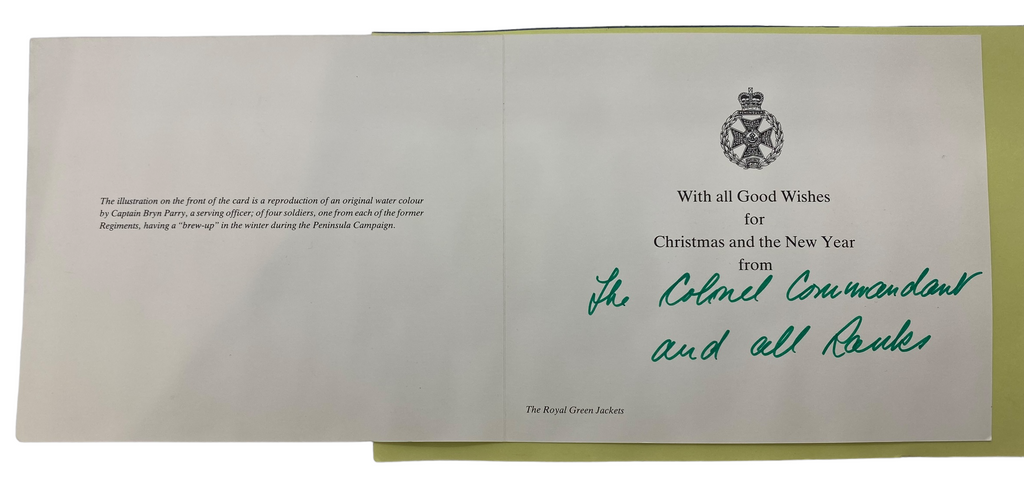 The illustration on the front of the card is a reproduction of an original water colour
by Captain Bryn Parry, a serving officer; of four soldiers, one from each of the former
Regiments, having a “brew-up” in the winter during the Peninsula Campaign.
With all Good Wishes
for
Christmas and the New Year
from
The Colonel Commandant
and all Ranks
The Royal Green Jackets